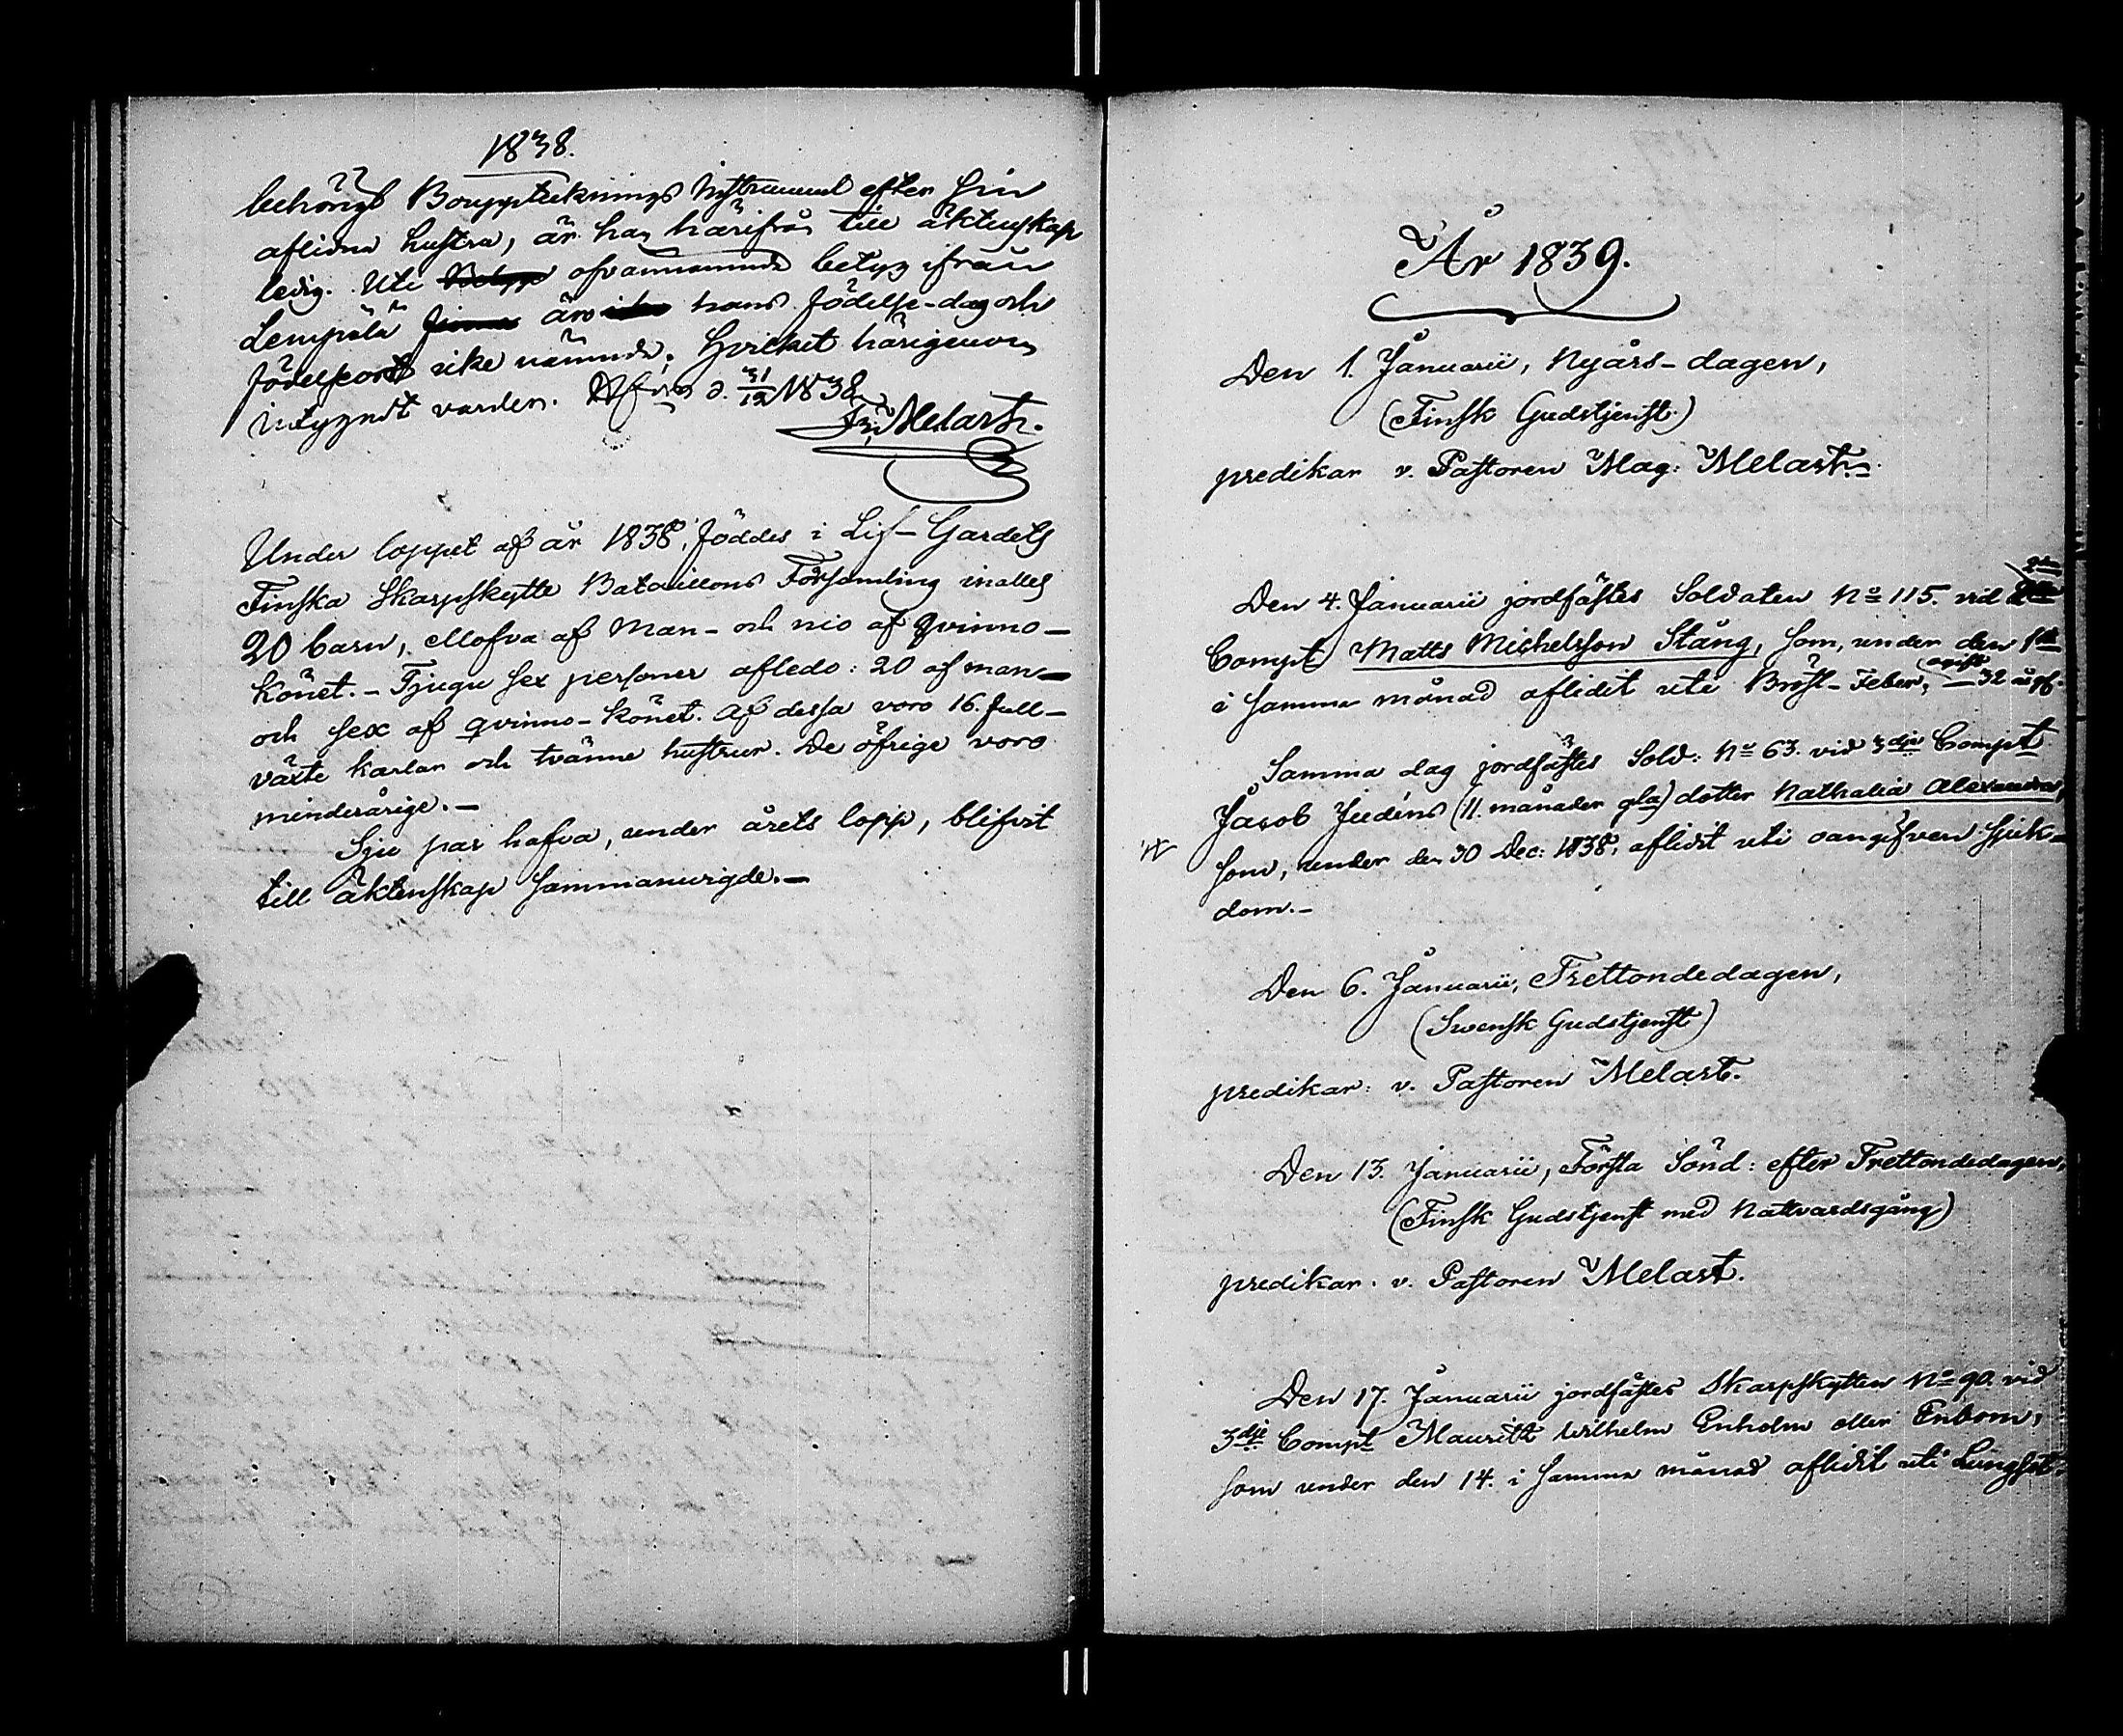 1838.
behörigt Bouppteknings Instrument efter sin
aflidna hustru, är han härifrån till äktenskap
ledig. Uti ofvannämnde betyg ifrån
Lempälä äro hans födelse-dag och
födelseort icke nämnde. Hvilket härigenom
intygadt varder. d. 31/12 1838.
Fr. Melart.
Under loppet af år 1838, föddes i Lif-Gardets
Finska Skarpskytte Bataillons Församling inalles
20 barn, ellofva af Man- och nio af qvinno-
könet. - Tjugu sex personer afledo: 20 af man-
och sex af qvinno-könet. Af dessa voro 16. full-
växte karlar och tvänne hustrur. De öfrige voro
minderårige. -
Sju par hafva, under årets lopp, blifvit
till äktenskap sammanvigde. -
År 1839.
Den 1. Januarii, Nyårs-dagen,
(Finsk Gudstjenst.)
predikar v. Pastoren Mag: Melart.
Den 4. Januarii jordfästes Soldaten No 115. vid 2dra
Compt Matts Michelsson Stång, som, under den 1sta
i samma månad aflidit uti Bröst-Feber, ogift - 32 år gl.
Samma dag jordfästes Sold: No 63. vid 3dje Compt
Jacob Judéns (11. månader gla) dotter Nathalia Alexandra,
som, under den 30 Dec: 1838, aflidit uti oangifven sjuk-
dom. -
Den 6. Januarii, Trettondedagen,
(Swensk Gudstjenst)
predikar: v. Pastoren Melart.
Den 13. Januarii, Första Sönd: efter Trettondedagen,
(Finsk Gudstjenst med Nattvardsgång)
predikar. v. Pastoren Melart.
Den 17. Januarii jordfästes Skarpskytten No 90. vid
3dje Compt Mauritz Wilhelm Enholm eller Enbom,
som under den 14. i samma månad aflidit uti Lungsot.